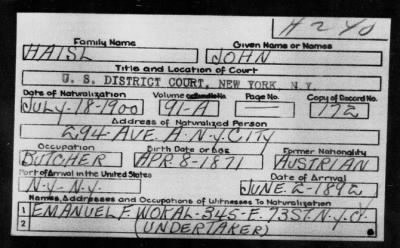 H240
Family Name Given Name or Names
HAISL JOHN
Title and Location of Court
U. S. DISTRICT COURT, NEW YORK, N.Y.
Date of Naturalization Volume Page No. Copy of Record No.
JULY-18-1900 91-A — 172
Address of Naturalized Person
294 AVE. A. N.Y. CITY
Occupation Birth Date or Age Former Nationality
BUTCHER APR. 8-1871 AUSTRIAN
Port of Arrival in the United States Date of Arrival
N.Y.-N.Y. JUNE.2-1892
Names, Addresses and Occupations of Witnesses To Naturalization
1 EMANUEL F. WOKAL-345-E.73 ST. N.Y.C.
2 (UNDERTAKER)